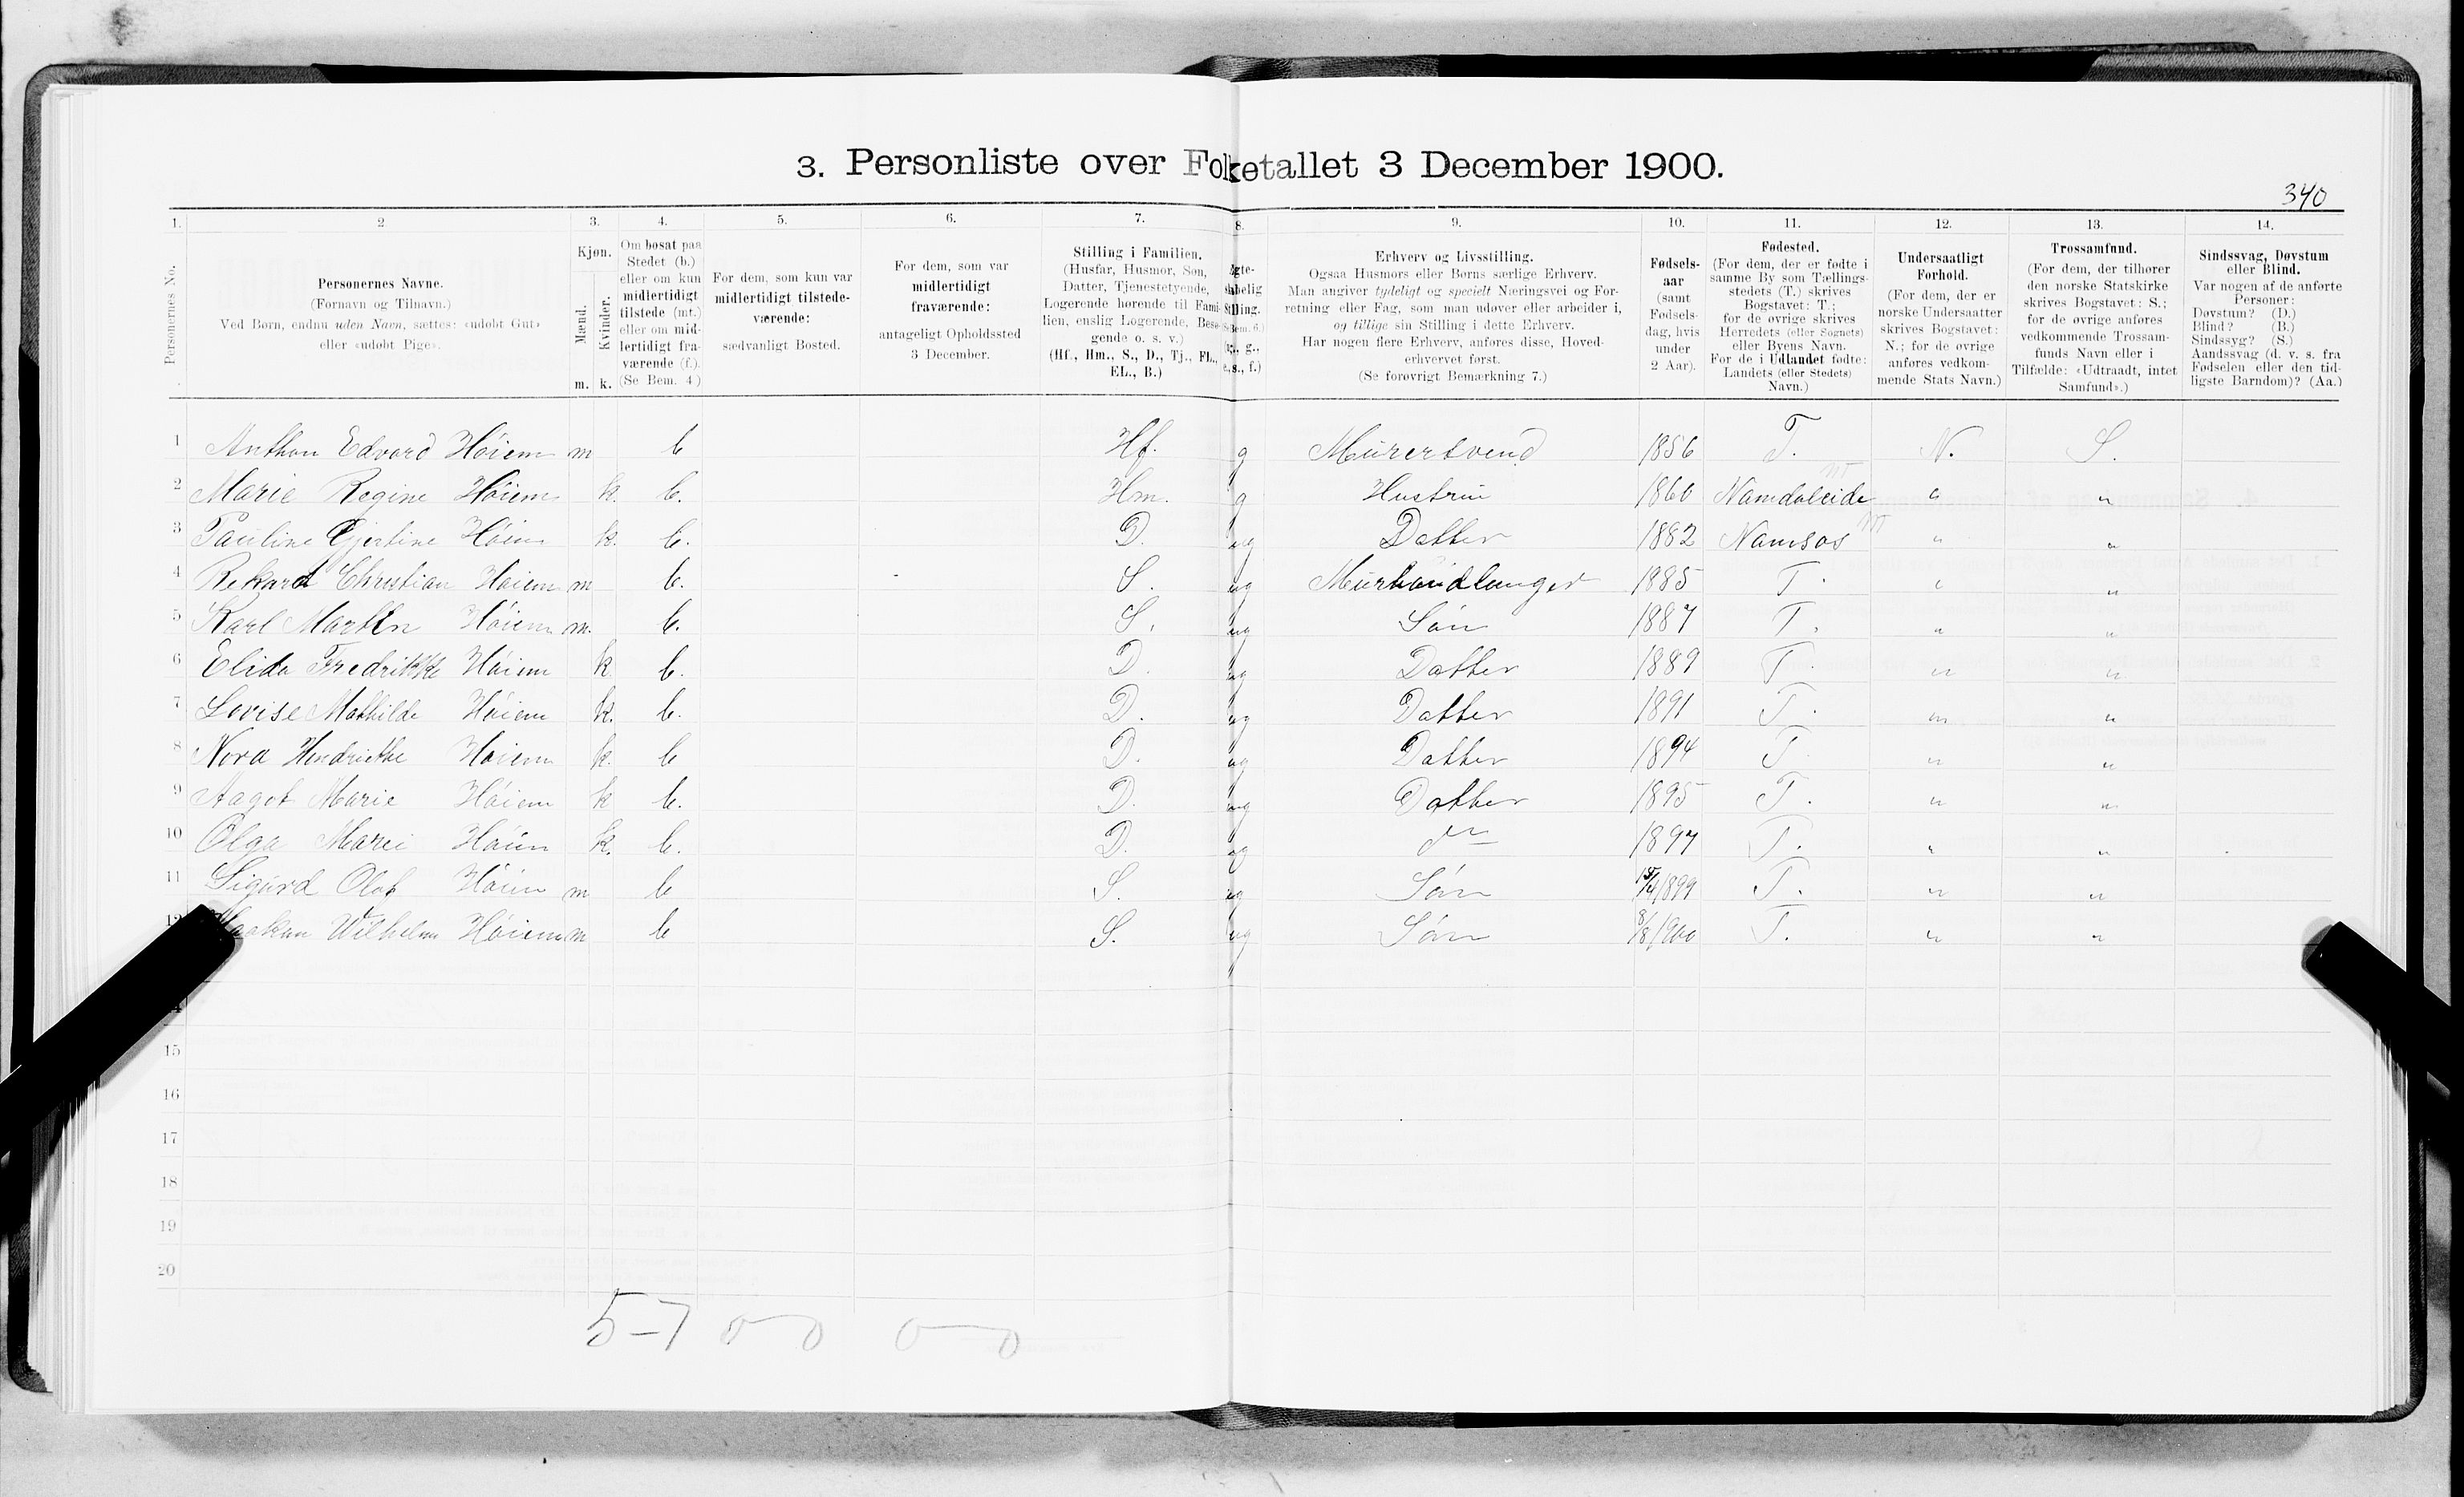 3. Personliste over Folketallet 3 December 1900.
340
1. 2 3. 4. 5. 6. 7. 8. 9. 10. 11. 12. 13. 14.
Personernes No.
Personernes Navne.
(Fornavn og Tilnavn.)
Ved Børn, endnu uden Navn, sættes: «udøbt Gut»
eller «udøbt Pige».
Kjøn.
Mænd.
Kvinder.
m. k.
Om bosat paa
Stedet (b.)
eller om kun
midlertidigt
tilstede (mt.)
eller om mid-
lertidigt fra-
værende (f.).
(Se Bem. 4.)
For dem, som kun var
midlertidigt tilstede-
værende:
sædvanligt Bosted.
For dem, som var
midlertidigt
fraværende:
antageligt Opholdssted
3 December.
Stilling i Familien.
(Husfar, Husmor, Søn,
Datter, Tjenestetyende,
Logerende hørende til Fami-
lien, enslig Logerende, Besø-
gende o. s. v.)
(Hf., Hm., S., D., Tj., FL.,
EL., B.)
Erhverv og Livsstilling.
Ogsaa Husmors eller Børns særlige Erhverv.
Man angiver tydeligt og specielt Næringsvei og For-
retning eller Fag, som man udøver eller arbeider i,
og tillige sin Stilling i dette Erhverv.
Har nogen flere Erhverv, anføres disse, Hoved-
erhvervet først.
(Se forøvrigt Bemærkning 7.)
Fødsels-
aar
(samt
Fødsels-
dag, hvis
under
2 Aar).
Fødested.
(For dem, der er fødte i
samme By som Tællings-
stedets (T.) skrives
Bogstavet: T.;
for de øvrige skrives
Herredets (eller Sognets)
eller Byens Navn.
For de i Udlandet fødte:
Landets (eller Stedets)
Navn.)
Undersaatligt
Forhold.
(For dem, der er
norske Undersaatter
skrives Bogstavet:
N.; for de øvrige
anføres vedkom-
mende Stats Navn.)
Trossamfund.
(For dem, der tilhører
den norske Statskirke
skrives Bogstavet: S.;
for de øvrige anføres
vedkommende Trossam-
funds Navn eller i
Tilfælde: «Udtraadt, intet
Samfund».)
Sindssvag, Døvstum
eller Blind.
Var nogen af de anførte
Personer:
Døvstum? (D.)
Blind? (B.)
Sindssyg? (S.)
Aandssvag (d. v. s. fra
Fødselen eller den tid-
ligste Barndom)? (Aa.)
1 Anthon Edvard Höiem m b Hf. g Murersvend 1856 T. N. S.
2 Marie Regine Höiem k. b. Hm. g Hustru 1860 Namdaleide " "
3 Pauline Gjertine Höiem k. b. D. ug Datter 1882 Namsos " "
4 Rikard Christian Höiem m b. S. ug Murhandlanger 1885 T. " "
5 Karl Martin Höiem m. b. S. ug Sön 1887 T. " "
6 Elida Fredrikke Höiem k b. D. ug Datter 1889 T. " "
7 Lovise Mathilde Höiem k. b. D. ug Datter 1891 T. " "
8 Nora Hendrikke Höiem k. b D. ug Datter 1894 T. " "
9 Aagot Marie Höiem k b. D. ug Datter 1895 T. " "
10 Olga Marei Höiem k. b. D. ug do 1897 T. " "
11 Sigurd Olaf Höiem m b S. ug Sön 15/4 1899 T. " "
12 Haakon Wilhelm Höiem m b S. ug Sön 8/8 1900 T. " "
15
16
17
18
19
20
5-7 0-0 0-0